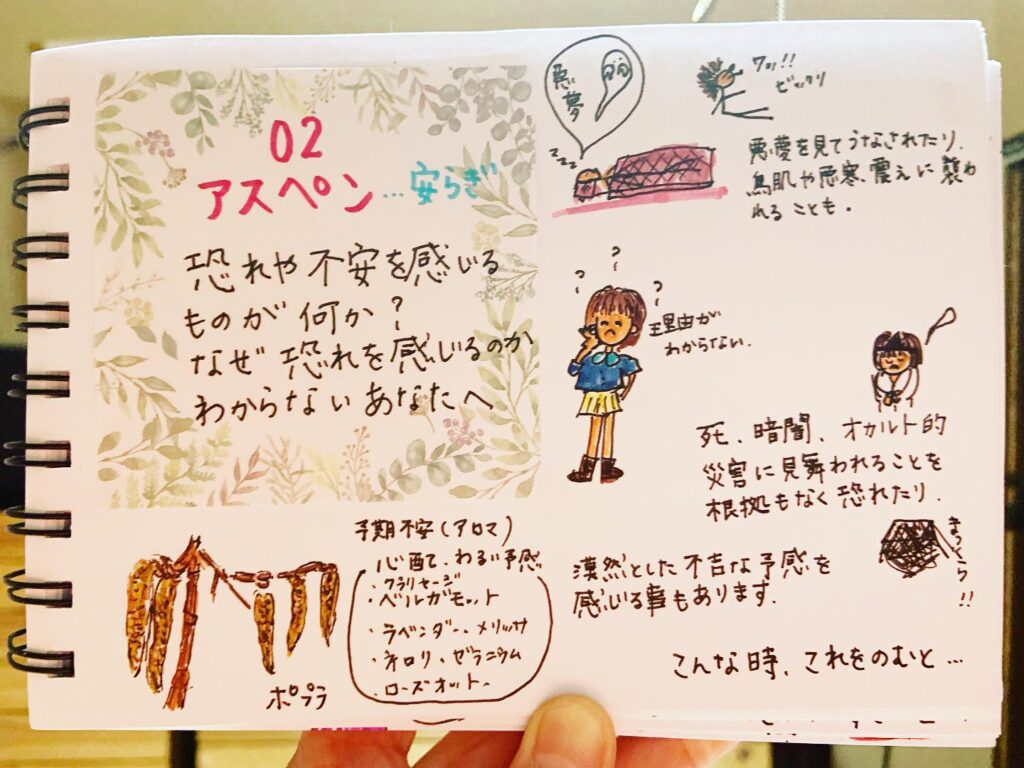 02
アスペン…安らぎ
恐れや不安を感じる
ものが何か?
なぜ恐れを感じるのか
わからないあなたへ
予期不安(アロマ)
心配で、わるい予感
・クラリセージ
・ベルガモット
・ラベンダー、メリッサ
・ネロリ、ゼラニウム
・ローズオットー
ポプラ
悪夢
zzz
ワッ!!
ビックリ
悪夢を見てうなされたり、
鳥肌や悪寒、震えに襲わ
れることも。
? ? ?
理由が
わからない。
死、暗闇、オカルト的
災害に見舞われることを
根拠もなく恐れたり、
まっくら!!
漠然とした不吉な予感を
感じる事もあります。
こんな時、これをのむと…